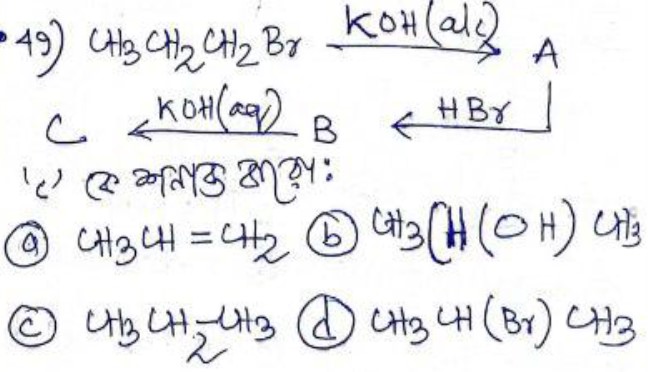 49) CH3CH2CH2Br KOH(alc) A
C KOH(aq) B HBr
'C' কে শনাক্ত করো:
(a) CH3CH=CH2 (b) CH3CH(OH)CH3
(c) CH3CH2-CH3 (d) CH3CH(Br)CH3